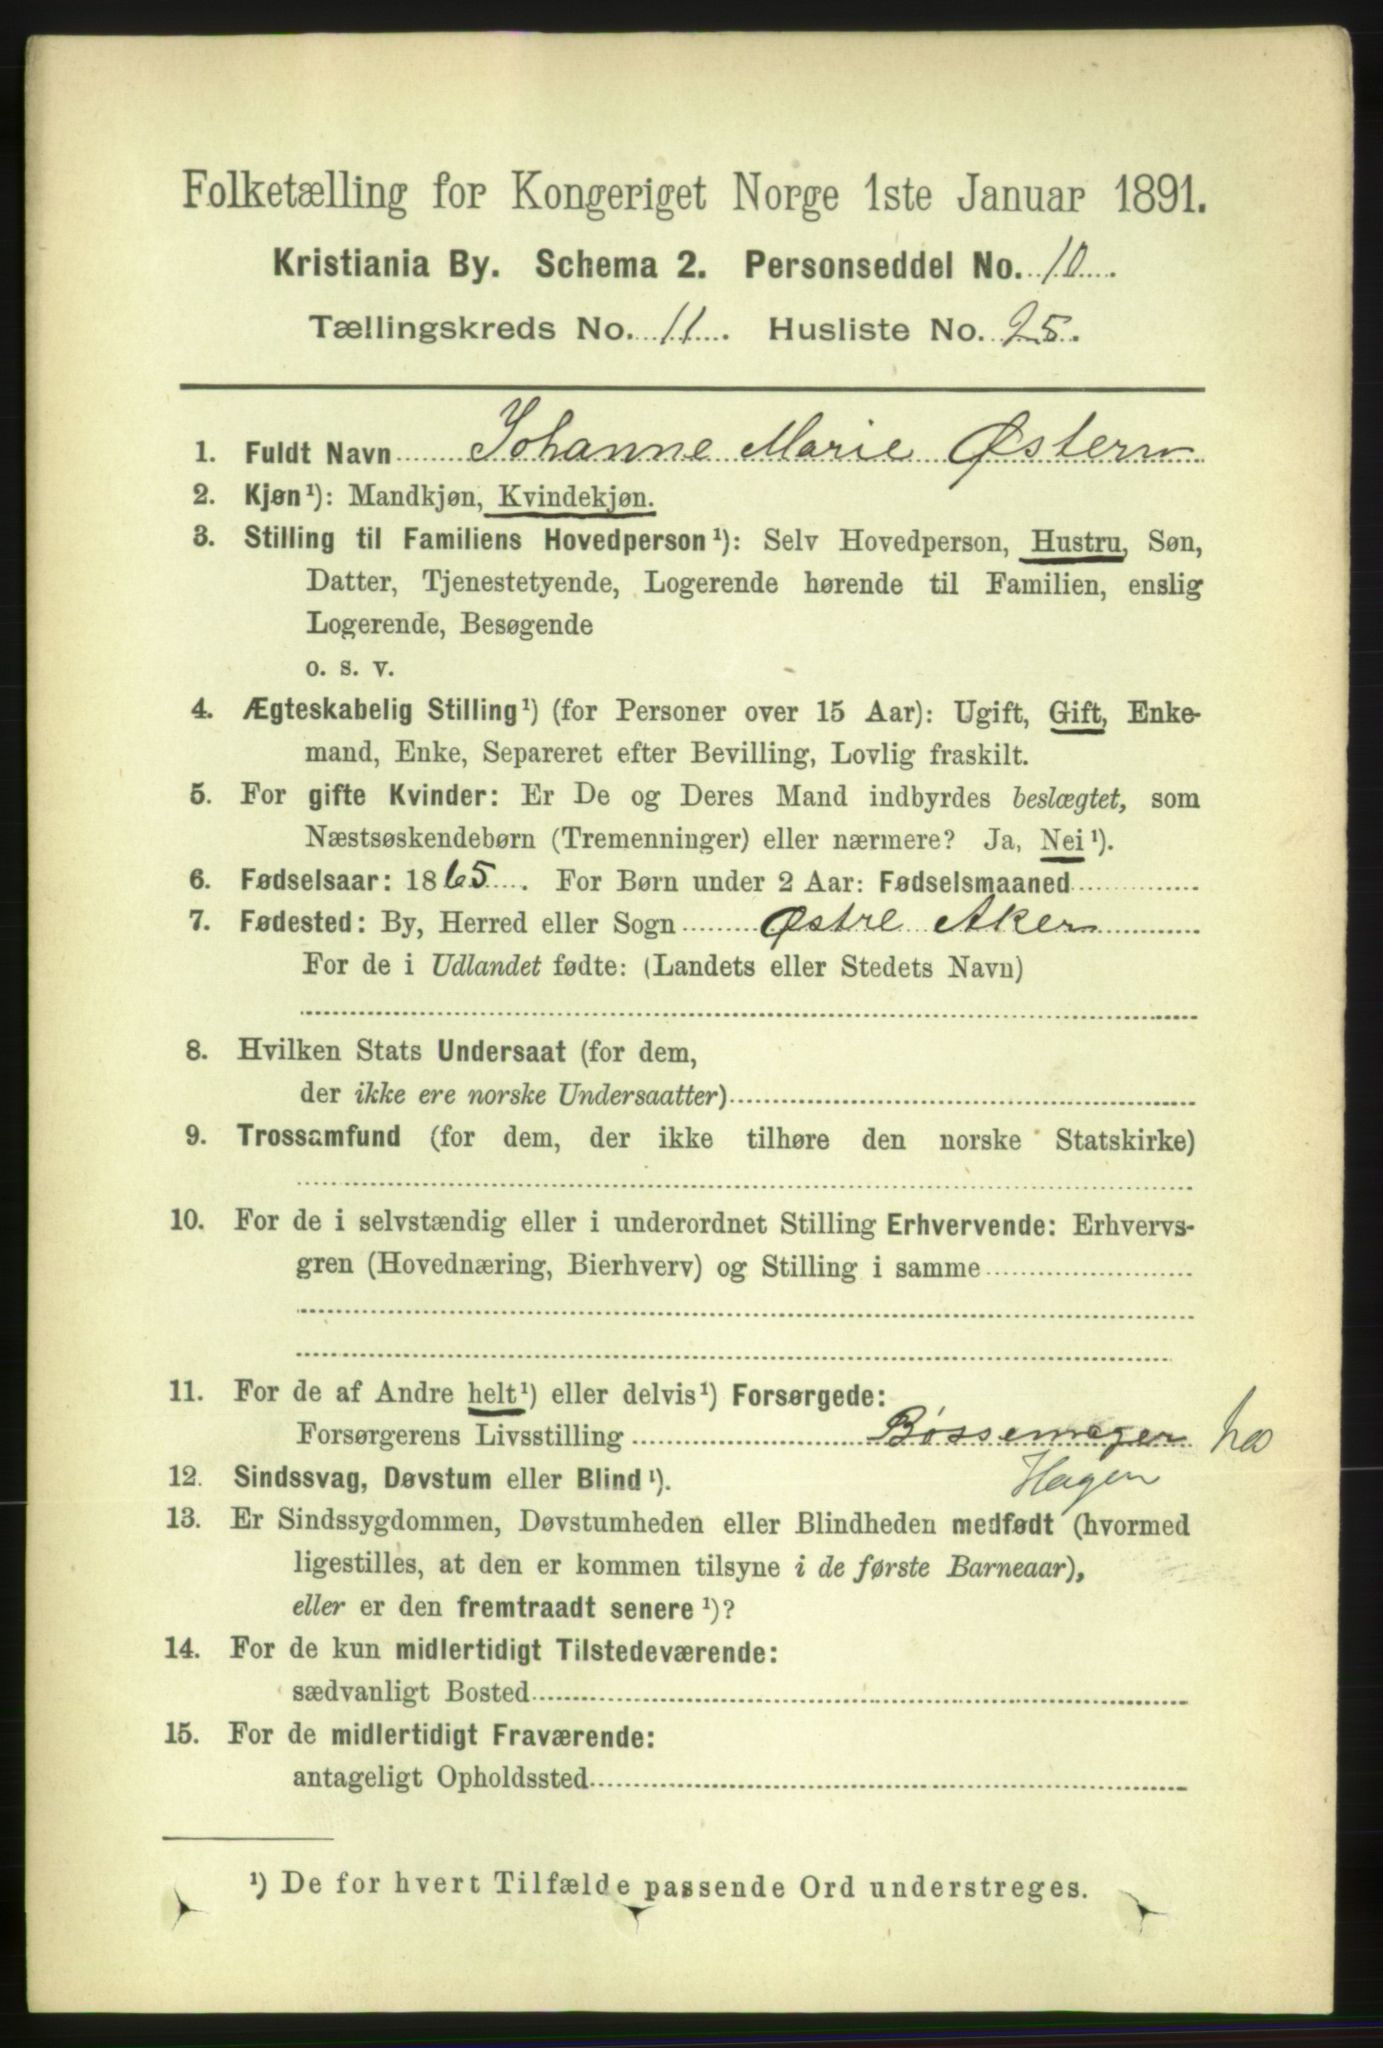 Folketælling for Kongeriget Norge 1ste Januar 1891.
Kristiania By. Schema 2. Personseddel No. 10
Tællingskreds No. 11. Husliste No. 25.
1. Fuldt Navn Johanne Marie Østern
2. Kjøn¹): Mandkjøn, Kvindekjøn.
3. Stilling til Familiens Hovedperson¹): Selv Hovedperson, Hustru, Søn,
Datter, Tjenestetyende, Logerende hørende til Familien, enslig
Logerende, Besøgende
o. s. v.
4. Ægteskabelig Stilling¹) (for Personer over 15 Aar): Ugift, Gift, Enke-
mand, Enke, Separeret efter Bevilling, Lovlig fraskilt.
5. For gifte Kvinder: Er De og Deres Mand indbyrdes beslægtet, som
Næstsøskendebørn (Tremenninger) eller nærmere? Ja, Nei¹).
6. Fødselsaar: 1865. For Børn under 2 Aar: Fødselsmaaned
7. Fødested: By, Herred eller Sogn Østre Aker
For de i Udlandet fødte: (Landets eller Stedets Navn)
8. Hvilken Stats Undersaat (for dem,
der ikke ere norske Undersaatter)
9. Trossamfund (for dem, der ikke tilhøre den norske Statskirke)
10. For de i selvstændig eller i underordnet Stilling Erhvervende: Erhvervs-
gren (Hovednæring, Bierhverv) og Stilling i samme
11. For de af Andre helt¹) eller delvis¹) Forsørgede:
Forsørgerens Livsstilling Bøssemager hos
Hagen
12. Sindssvag, Døvstum eller Blind¹).
13. Er Sindssygdommen, Døvstumheden eller Blindheden medfødt (hvormed
ligestilles, at den er kommen tilsyne i de første Barneaar),
eller er den fremtraadt senere¹)?
14. For de kun midlertidigt Tilstedeværende:
sædvanligt Bosted
15. For de midlertidigt Fraværende:
antageligt Opholdssted
¹) De for hvert Tilfælde passende Ord understreges.